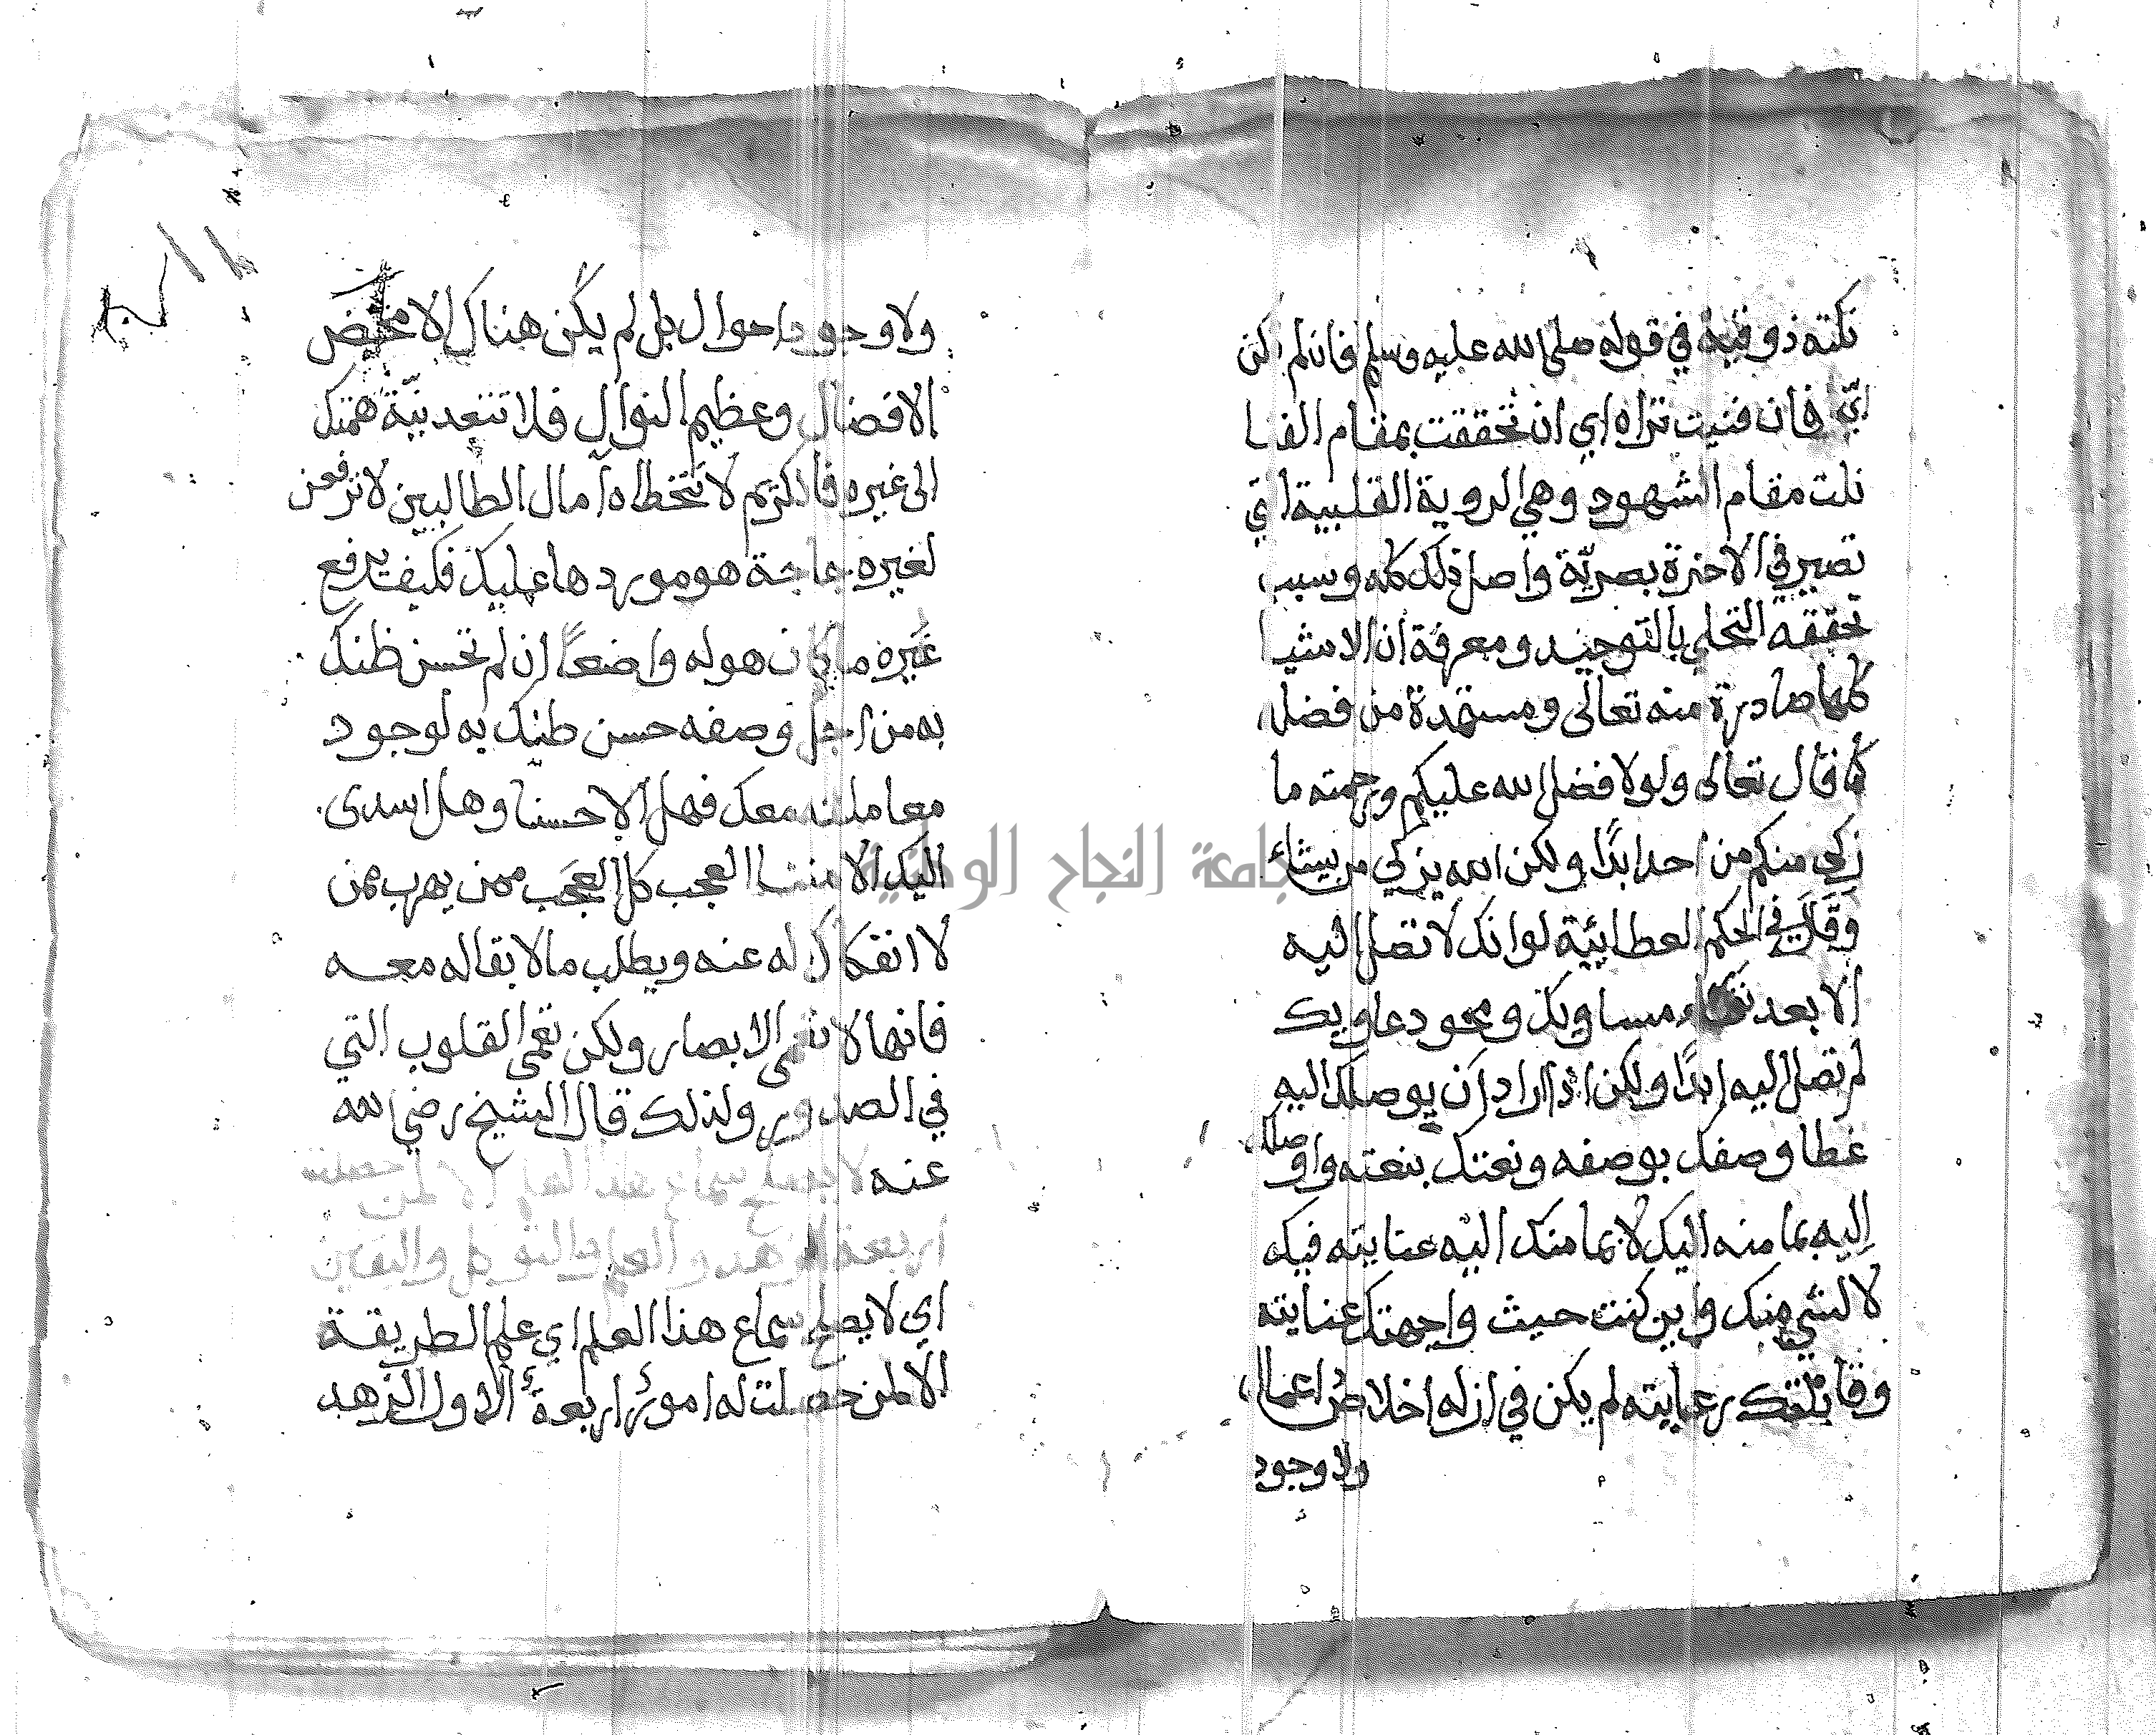 نكتة ذوقية في قوله صلى الله عليه وسلم فان لم تكن
اي فان فنيت تراه اي ان تحققت بمقام الفنا
نلت مقام الشهود وهي الروية القلبية التي
تصير في الاخرة بصريّة واصل ذلك كله وسبب
تحققه التحلي بالتوحيد ومعرفة ان الاشيا
كلها صادرة منه تعالى ومستمدة من فضله
كما قال تعالى ولولا فضل الله عليكم ورحمته ما
زكى منكم من احد ابدًا ولكن الله يزكي من يشاء
وقال في الحكم العطائية لو انك لا تصل اليه
الا بعد فناء مساويك ومحو دعاويك
لم تصل اليه ابدًا ولكن اذا اراد ان يوصلك اليه
غطا وصفك بوصفه ونعتك بنعته واوصلك
اليه بما منه اليك لا بما منك اليه عنايته فيك
لا لشي منك واين كنت حيث واجهتك عنايته
وقابلتك رعايته لم يكن في ازله اخلاص اعمال
ولا وجود
ولا وجود احوال بل لم يكن هناك الا محض
الافضال وعظيم النوال فلا تتعد نيّة همتك
الى غيره فالكريم لا تتخطاه آمال الطالبين لا ترفعن
لغيره حاجة هو موردها عليك فكيف يرفع
غيره ما كان هو له واضعًا ان لم تحسن ظنك
به من اجل وصفه حسن ظنك به لوجود
معاملته معك فهل الاحسنا وهل اسدى
اليك الا مننا العجب كل العجب ممن يهرب ممن
لا انفكاك له عنه ويطلب ما لا بقا له معه
فانها لا تعمى الابصار ولكن تعمى القلوب التي
في الصدور ولذلك قال الشيخ رضي الله
عنه لا يصلح سماع هذا العلم الا لمن حصلت له
اربعة الزهد والعلم والتوكل واليقين
اي لا يصلح سماع هذا العلم اي علم الطريقة
الا لمن حصلت له امورٌ اربعة الاول الزهد
جامعة النجاح الوطنية